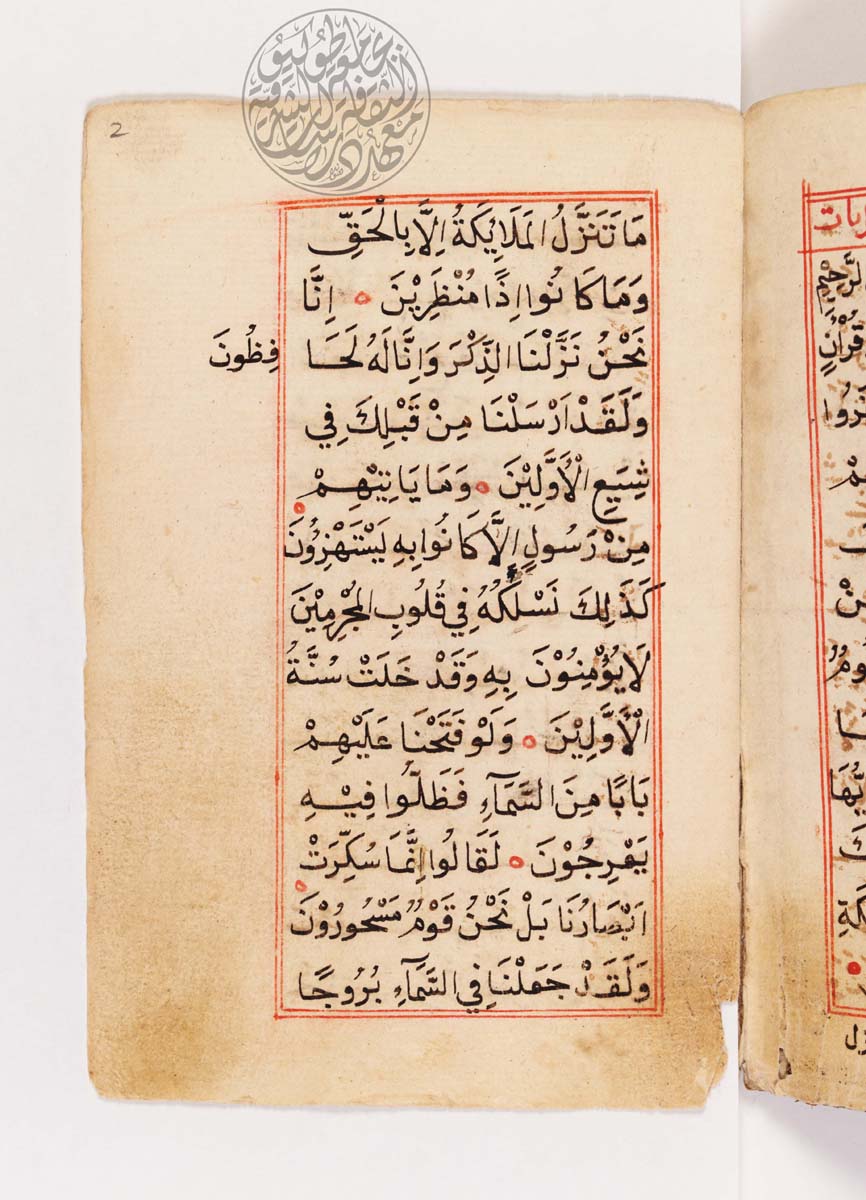 2
مَا تَنَزَّلُ المَلَائِكَةُ اِلَّا بِالْحَقِّ
وَمَا كَانُوا اِذًا مُنْظَرِيْنَ اِنَّا
نَحْنُ نَزَّلْنَا الذِّكْرَ وَاِنَّا لَهُ لَحَا
فِظُونَ
وَلَقَدْ اَرْسَلْنَا مِنْ قَبْلِكَ فِي
شِيَعِ الْأَوَّلِيْنَ وَمَا يَاتِيْهِمْ
مِنْ رَسُولٍ اِلَّا كَانُوا بِهِ يَسْتَهْزِؤُنَ
كَذَلِكَ نَسْلُكُهُ فِي قُلُوبِ المُجْرِمِيْنَ
لَا يُؤْمِنُوْنَ بِهِ وَقَدْ خَلَتْ سُنَّةُ
الْأَوَّلِيْنَ وَلَوْ فَتَحْنَا عَلَيْهِمْ
بَابًا مِنَ السَّمَآءِ فَظَلُّوا فِيْهِ
يَعْرِجُوْنَ لَقَالُوا اِنَّمَا سُكِّرَتْ
اَبْصَارُنَا بَلْ نَحْنُ قَوْمٌ مَسْحُورُوْنَ
وَلَقَدْ جَعَلْنَا فِي السَّمَآءِ بُرُوجًا